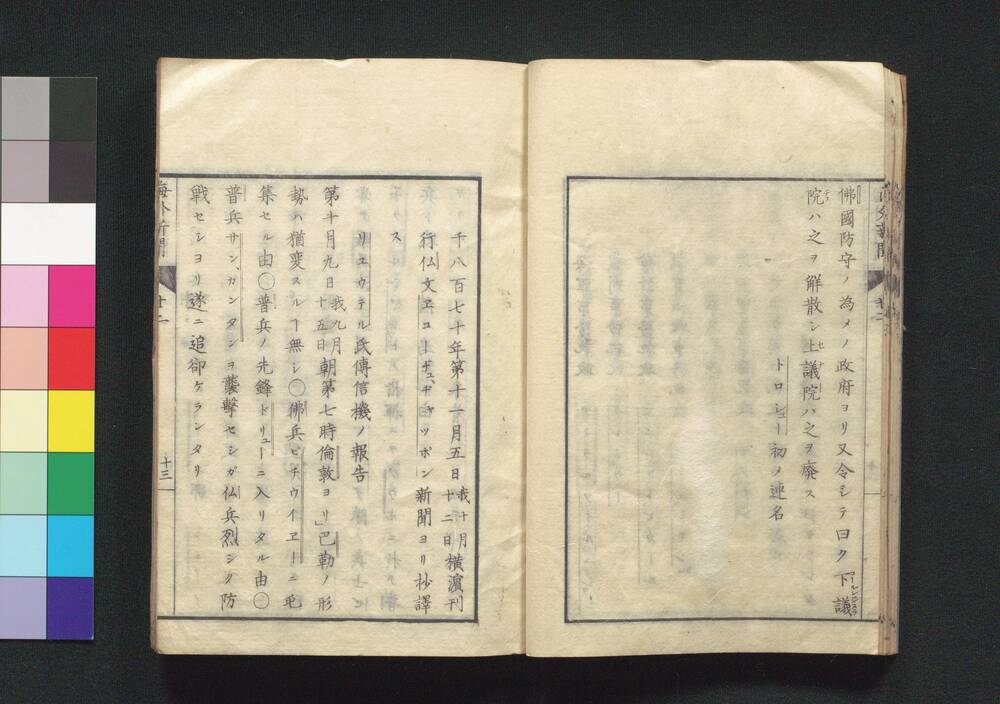 佛國防守ノ為メノ政府ヨリ又令シテ曰ク下議
院ハ之ヲ解散シ上議院ハ之ヲ廃ス
トロシュー初メ連名
千八百七十年第十一月五日我十月十二日横濵刊
行仏文ヱコージュ、ヂャツポン新聞ヨリ抄譯
リユウテル氏傳信機ノ報告
第十月九日我九月十五日朝第七時倫敦ヨリ」巴勒ノ形
勢ハ猶変スルヿ無シ〇佛兵ビチウイヱーニ屯
集セル由〇普兵ノ先鋒ドリューニ入リタル由〇
普兵サン、ガンタンヲ襲撃セシガ仏兵烈シク防
戦セシヨリ遂ニ追郤ケラレタリ
海外新聞
十三